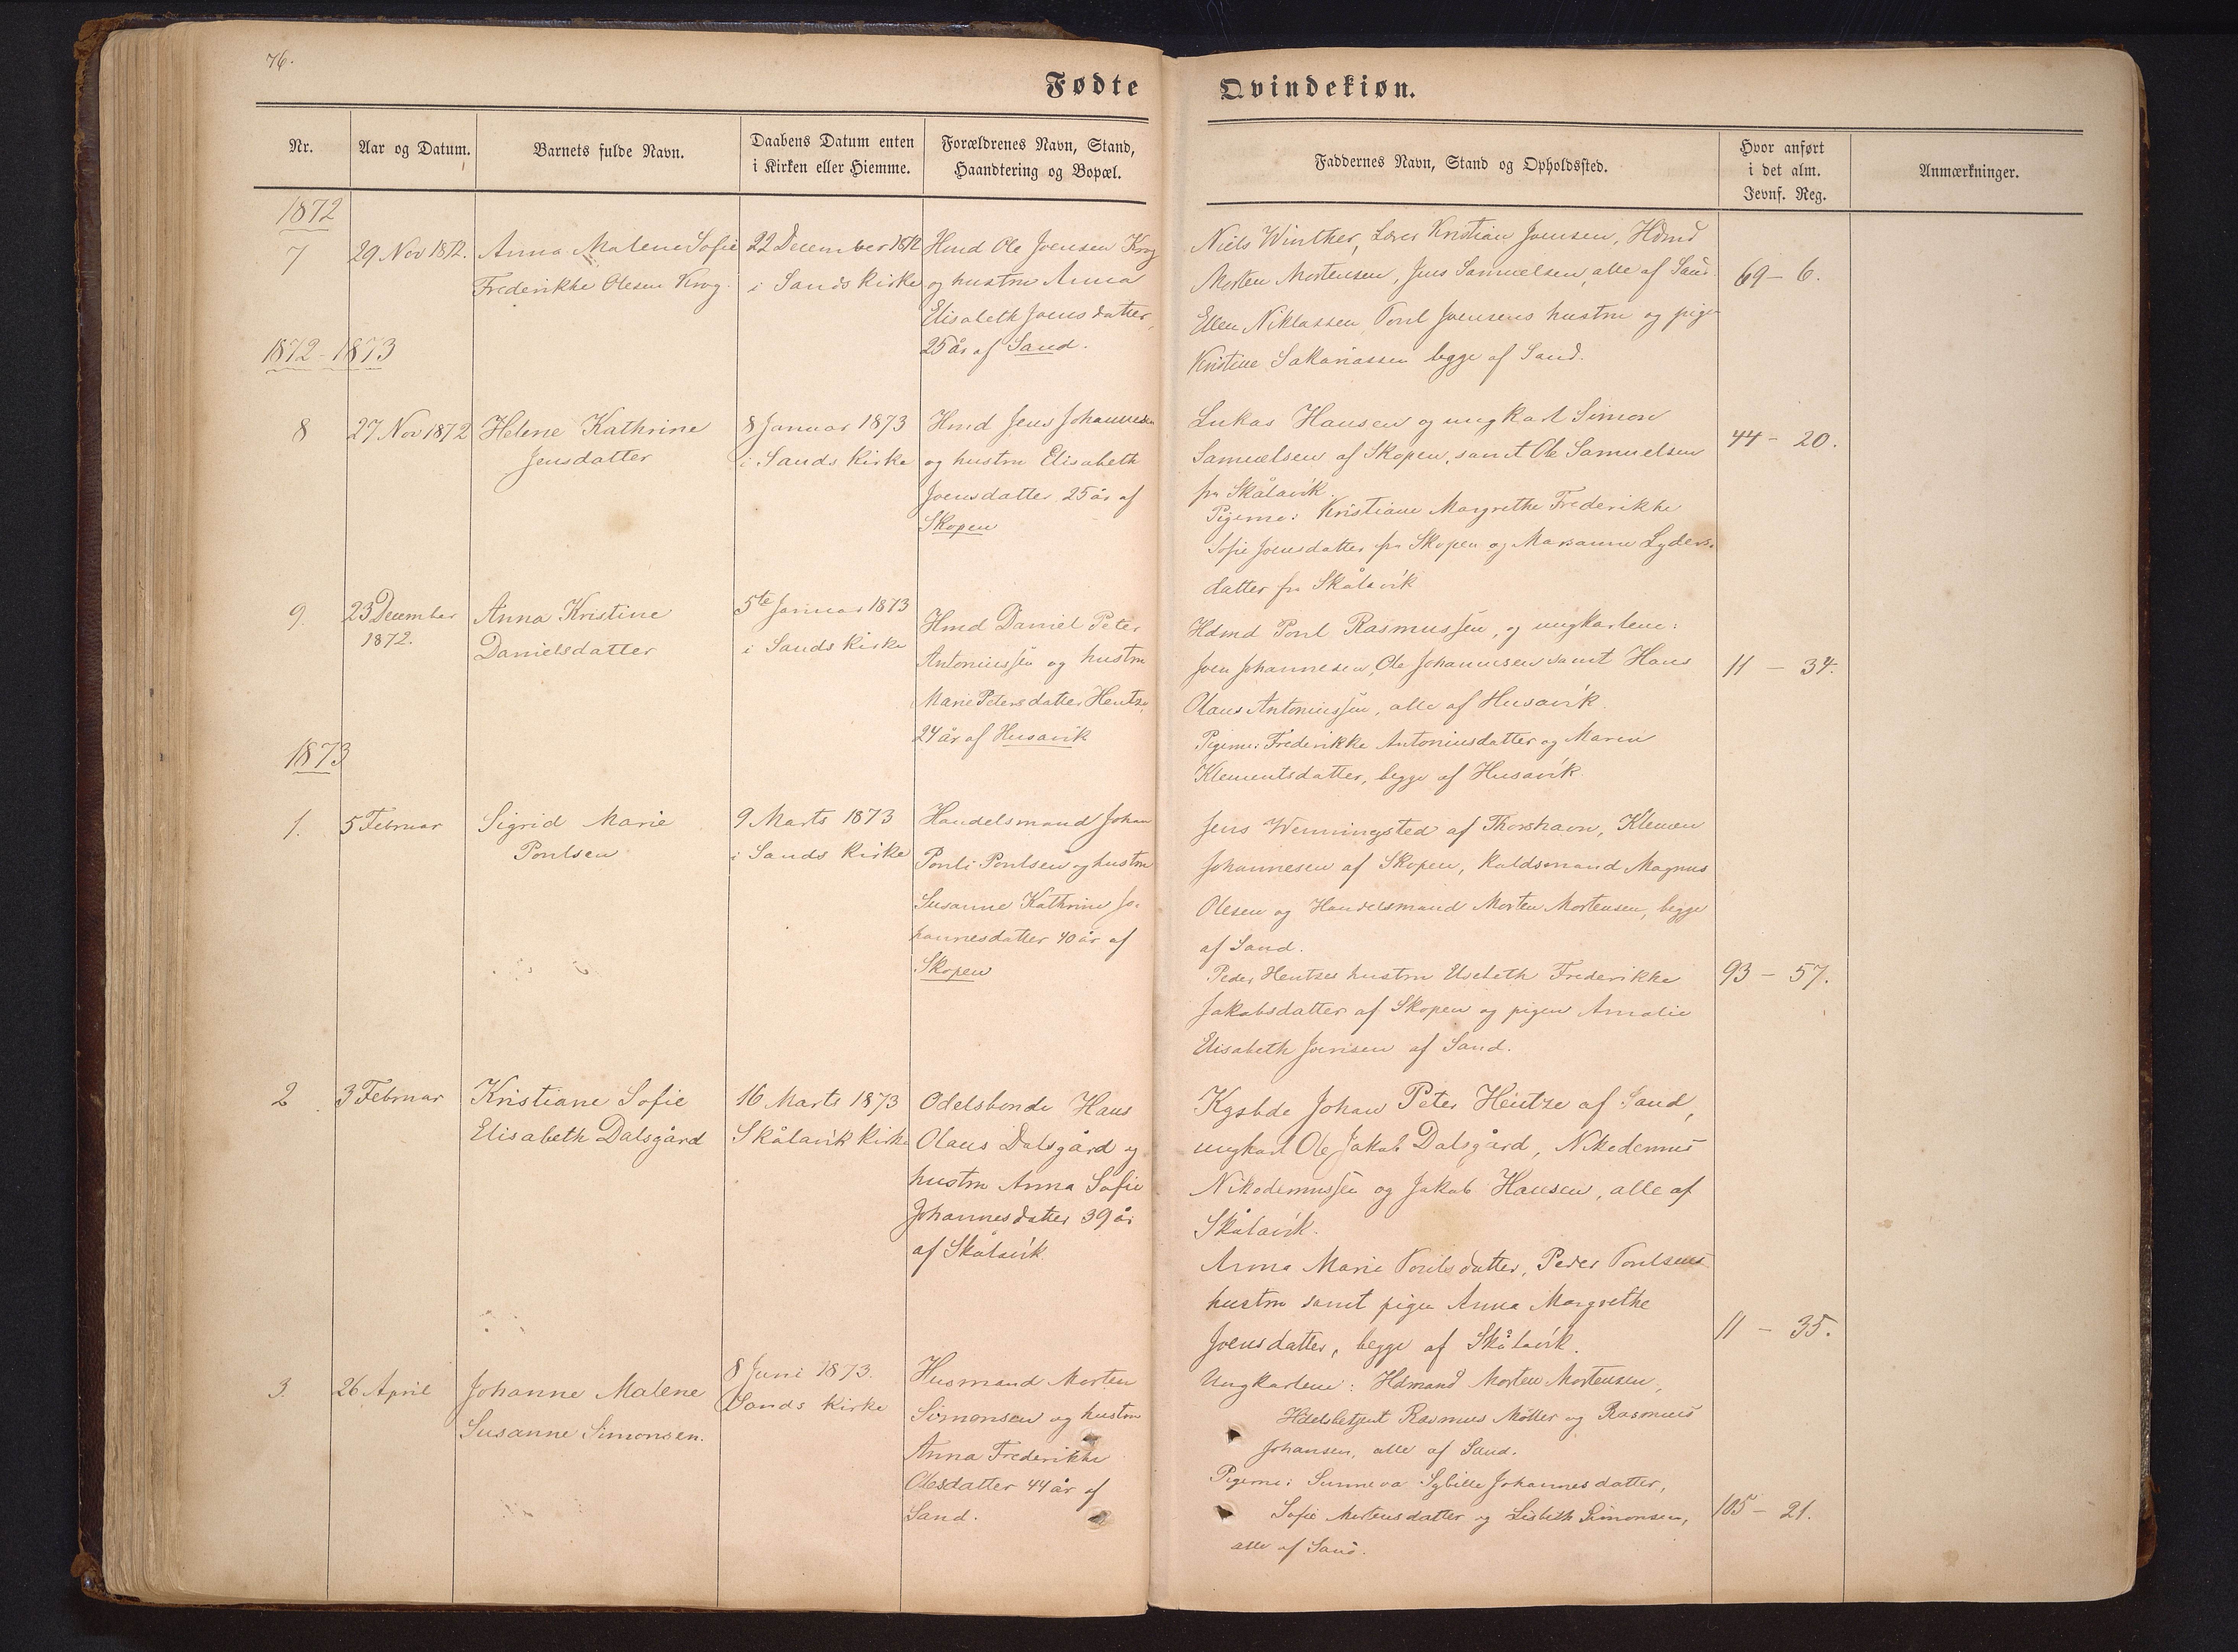 76.
Fødte
Qvindekiøn.
Nr.
Aar og Datum.
Barnets fulde Navn.
Daabens Datum enten
i Kirken eller Hiemme.
Forældrenes Navn, Stand,
Haandtering og Bopæl.
Faddernes Navn, Stand og Opholdssted.
Hvor anført
i det alm.
Jevnf. Reg.
Anmærkninger.
1872
7
29 Nov 1872.
Anna Malene Sofie
Frederikke Olesen Krog.
22 December 1872
i Sands Kirke
Hmd Ole Joensen Krog
og hustru Anna
Elisabeth Joensdatter,
25 år af Sand.
Niels Winther, Lærer Kristian Joensen, Hdmd
Morten Mortensen, Jens Samuelsen, alle af Sand.
Ellen Niklassen, Poul Joensens hustru og pigen
Kristine Sakariassen begge af Sand.
69 – 6.
1872 - 1873
8
27 Nov 1872
Helene Kathrine
Jensdatter
8 Januar 1873
i Sands Kirke
Hmd Jens Johannesen
og hustru Elisabeth
Joensdatter 25 år af
Skopen
Lukas Hansen og ungkarl Simon
Samuelsen af Skopen, samt Ole Samuelsen
fra Skålavik.
Pigerne: Kristiane Margrethe Frederikke
Sofie Joensdatter fra Skopen og Marianne Lyders-
datter fra Skålavik
44 – 20.
9.
23 December
1872.
Anna Kristine
Danielsdatter
5te Januar 1873
i Sands Kirke
Hmd Daniel Peter
Antoniussen og hustru
Marie Petersdatter Hentze,
24 år af Husavik
Hdmd Poul Rasmussen, og ungkarlene:
Joen Johannesen, Ole Johannesen samt Hans
Olaus Antoniussen, alle af Husavik.
Pigerne: Frederikke Antoniusdatter og Maren
Klementsdatter, begge af Husavik.
11 – 34.
1873
1.
5 Februar
Sigrid Marie
Poulsen
9 Marts 1873
i Sands Kirke
Handelsmand Johan
Pouli Poulsen og hustru
Susanne Kathrine Jo-
hannesdatter 40 år af
Skopen
Jens Wenningsted af Thorshavn, Klemen
Johannesen af Skopen, Kaldsmand Magnus
Olesen og Handelsmand Morten Mortensen, begge
af Sand.
Peder Hentzes hustru Elsebeth Frederikke
Jakobsdatter af Skopen og pigen Amalie
Elisabeth Joensen af Sand.
93 – 57.
2
3 Februar
Kristiane Sofie
Elisabeth Dalsgård
16 Marts 1873
Skålavik Kirke
Odelsbonde Hans
Olaus Dalsgård og
hustru Anna Sofie
Johannesdatter 39 år
af Skålavik
Kgsbde Johan Peter Hentze af Sand,
ungkarl Ole Jakob Dalsgård, Nikodemus
Nikodemussen og Jakob Hansen, alle af
Skålavik.
Anna Marie Poulsdatter, Peder Poulsens
hustru samt pigen Anna Margrethe
Joensdatter, begge af Skålavik.
11 – 35.
3.
26 April
Johanne Malene
Susanne Simonsen.
8 Juni 1873.
Sands Kirke
Husmand Morten
Simonsen og hustru
Anna Frederikke
Olesdatter 44 år af
Sand.
Ungkarlene: Hdmand Morten Mortensen,
Hdelsbetjent Rasmus Møller og Rasmus
Johansen, alle af Sand.
Pigerne: Sunneva Sybille Johannesdatter,
Sofie Mortensdatter og Lisbeth Simonsen,
alle af Sand.
105 – 21.